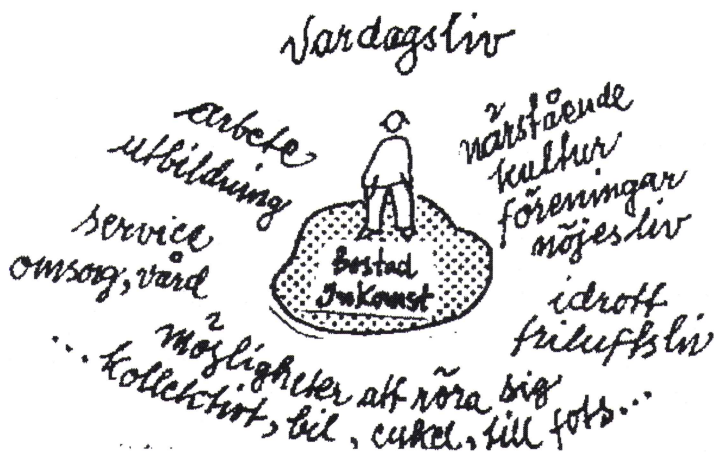 Vardagsliv
arbete
utbildning
service
omsorg, vård
närstående
kultur
föreningar
nöjesliv
idrott
friluftsliv
Bostad
Inkomst
möjligheter att röra sig
... kollektivt, bil, cykel, till fots...